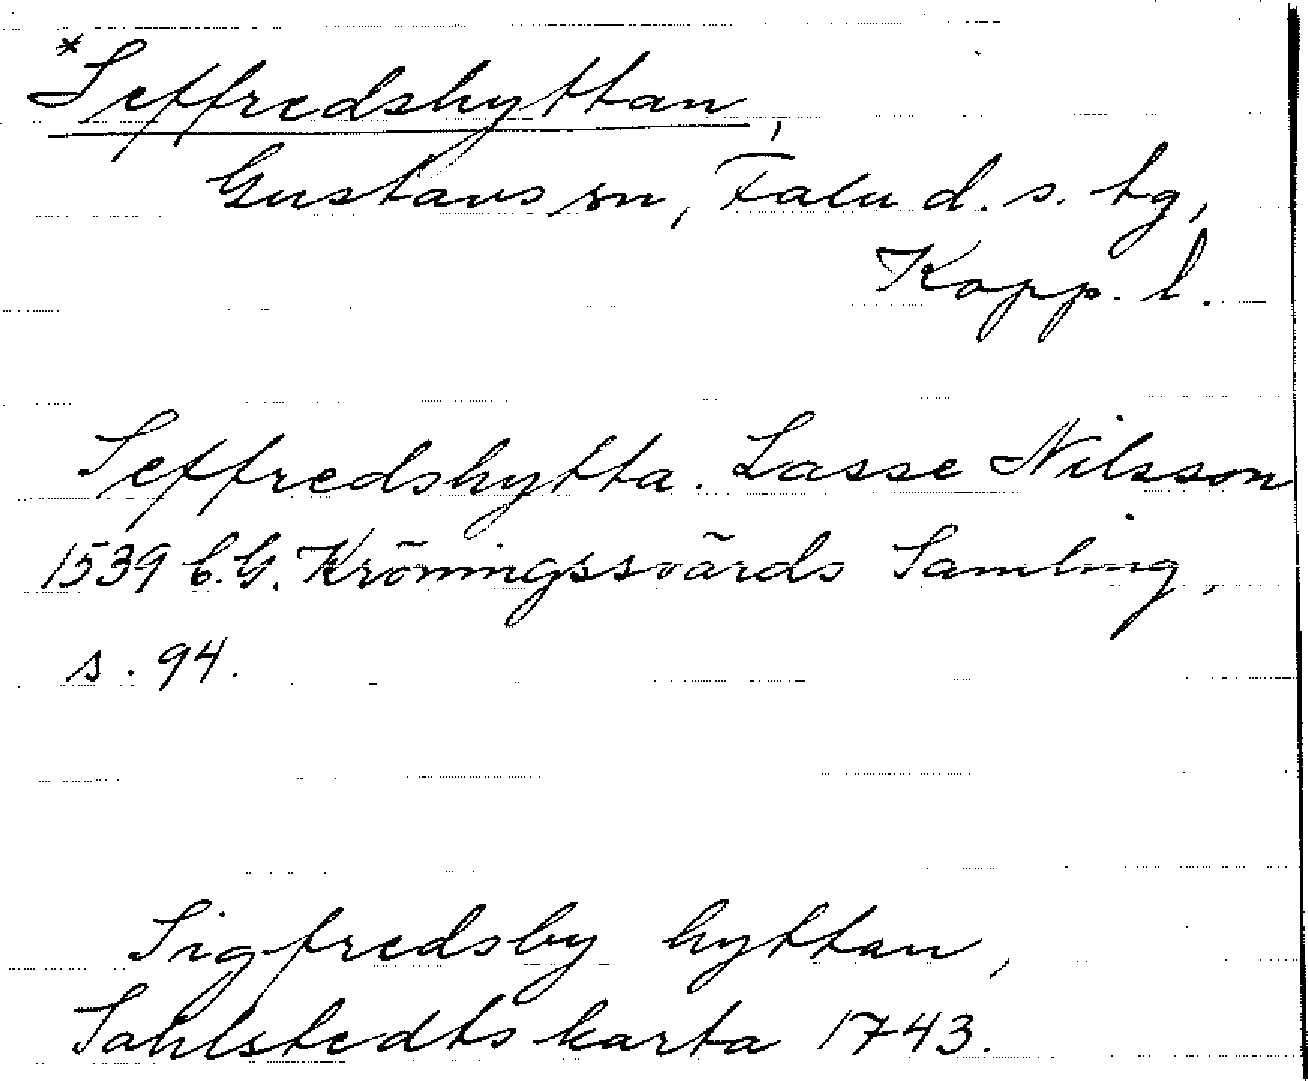 *Seffredshyttan,
Gustavs sn, Falu d. s. tg,
Kopp. l.
Seffredshytta. Lasse Nilsson
1539 C.G. Kröningssvärds Samling,
s. 94.
Sigfredsby hyttan,
Sahlstedts karta 1743.